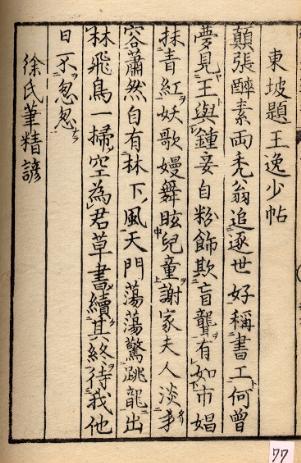 東坡題王逸少帖
顛張醉素兩禿翁追逐世好稱書工何曾
夢見王與鍾妄自粉飾欺盲聾有如市娼
抹青紅妖歌嫚舞眩兒童謝家夫人淡丰
容蕭然自有林下風天門蕩蕩驚跳龍出
林飛鳥一掃空為君草書續其終待我他
日不匆匆
徐氏筆精諺
77